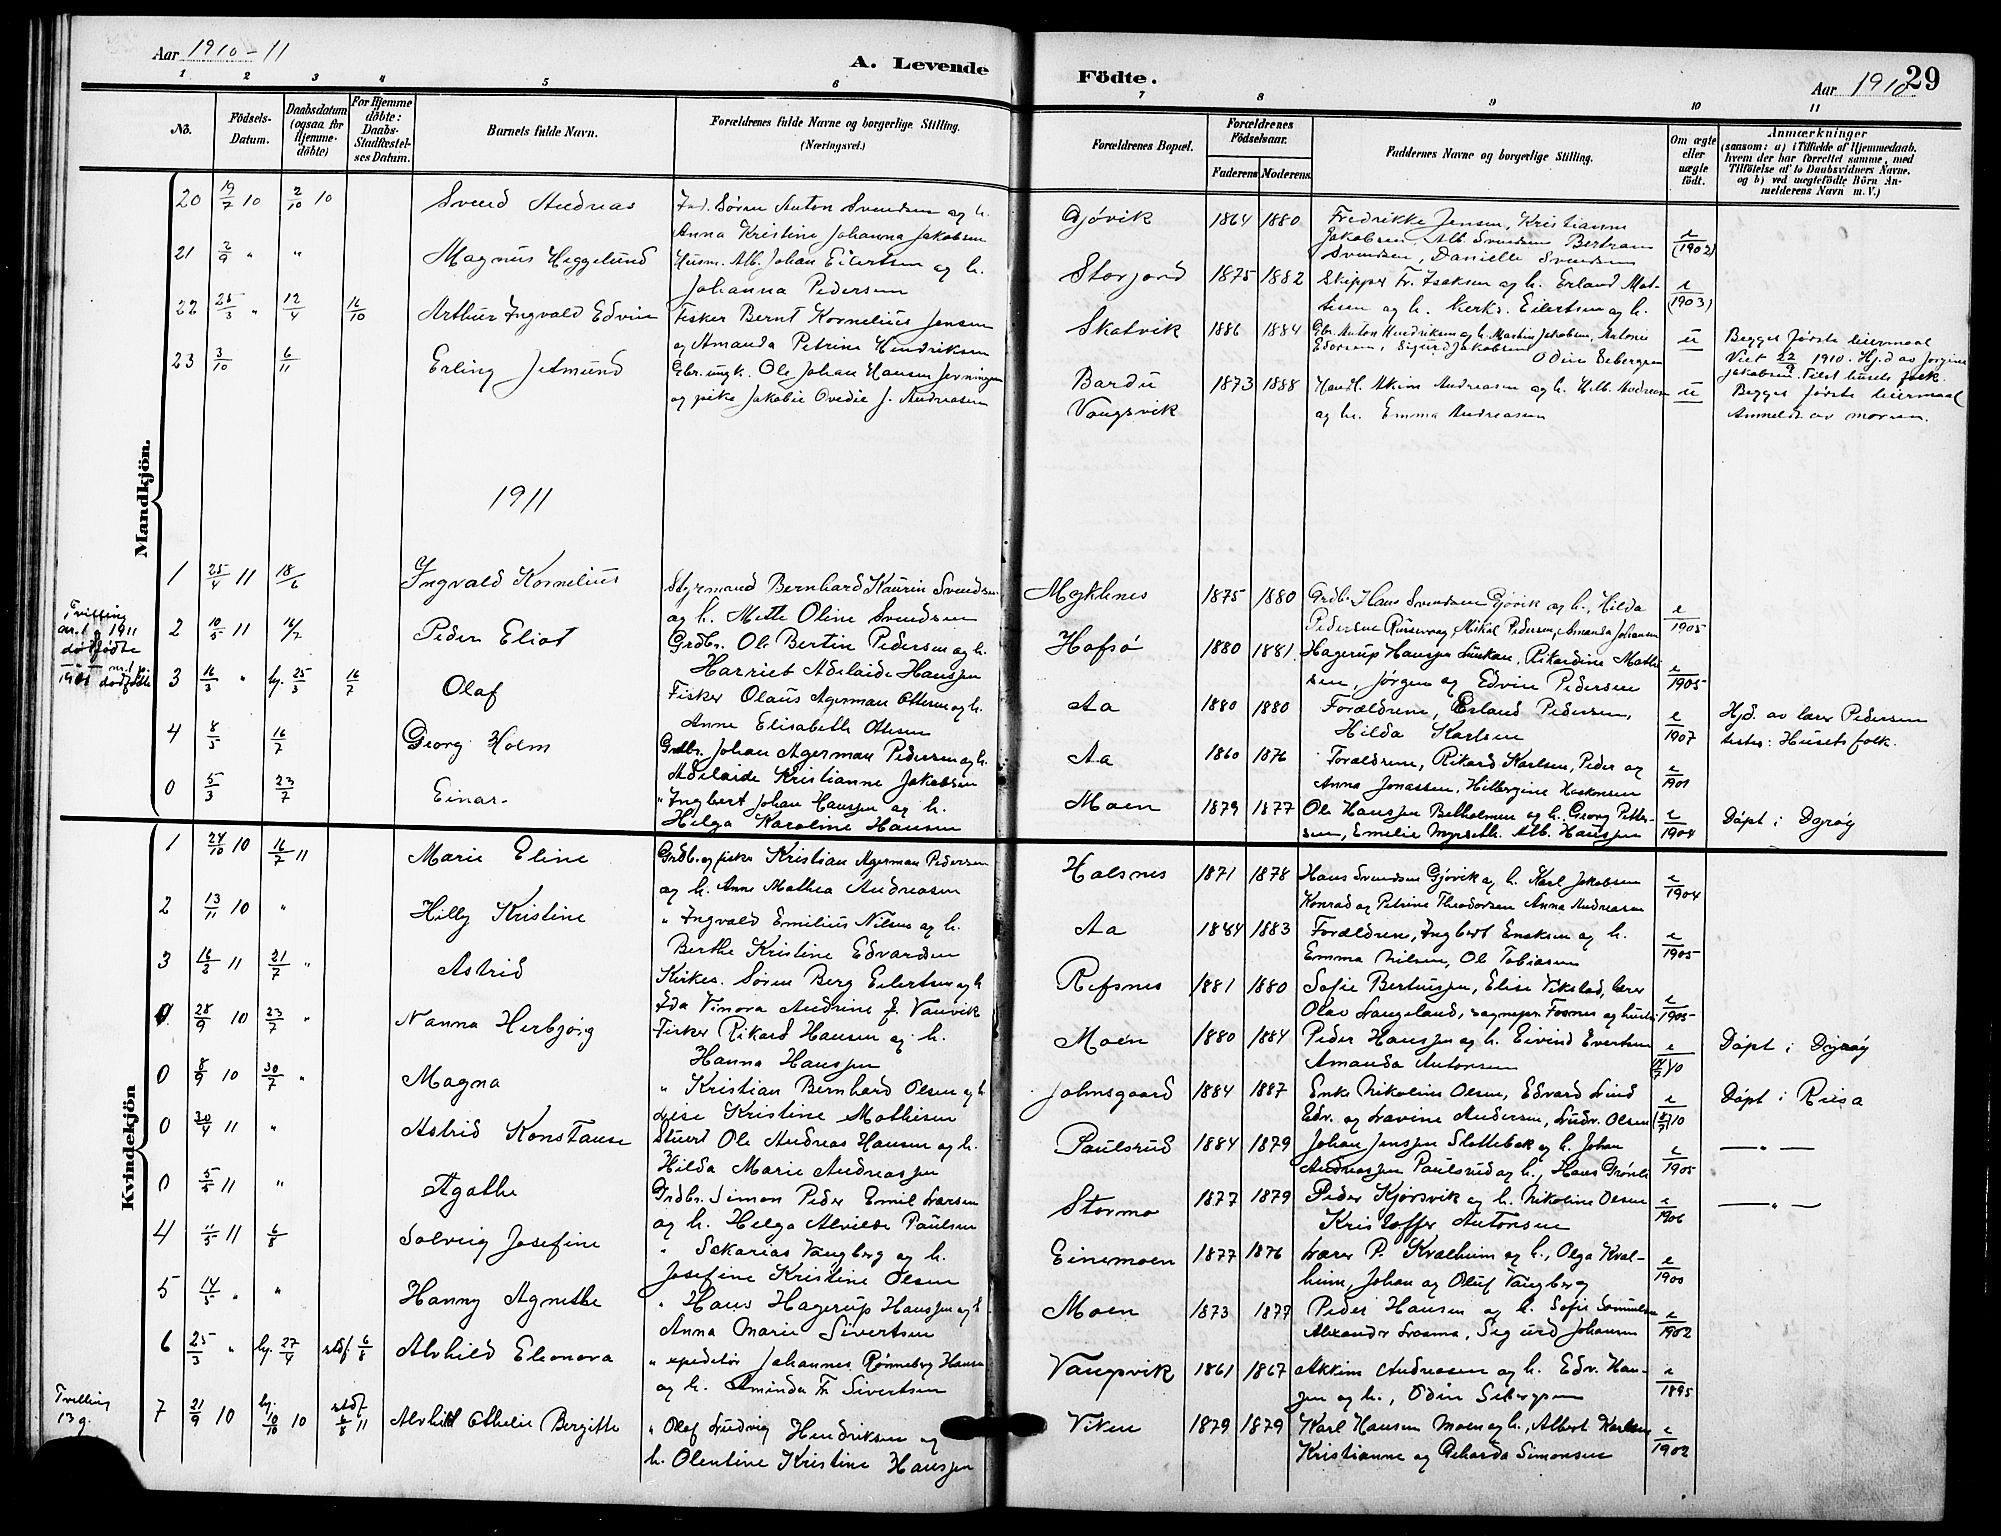 Aar 1910-11
A. Levende
Födte.
Aar 1910
29
1 2 3 4 5 6
7 8 9 10 11
No.
Födsels-Datum.
Daabsdatum (ogsaa for Hjemme-döbte)
For Hjemme döbte: Daabs-Stadfæstel-ses Datum.
Barnets fulde Navn.
Forældrenes fulde Navne og borgerlige Stilling.
(Næringsvei.)
Forældrenes Bopæl.
Forældrenes Födselsaar.
Faderens Moderens
Faddernes Navne og borgerlige Stilling.
Om ægte eller uægte födt.
Anmærkninger
(saasom: a) i Tilfælde af Hjemmedaab, hvem der har forrettet samme, med Tilföielse af to Daabsvidners Navne, og b) ved uægtefödte Börn An-melderens Navn m. V.)
Mandkjön.
20 19/7 10 2/10 10 Svend Andreas
Søren Anton Svendsen og h.
Anna Kristine Johanna Jakobsen
Gjøvik 1864 1880 Fredrikke Jensen, Kristianne
Jakobsen, Alb. Svendsen Bertram
Svendsen, Danielle Svendsen
e (1902)
21 2/9 " " Magnus Heggelund
Husm. Alb. Johan Eilertsen og h.
Johanna Pedersen
Storjord 1875 1882 Skipper Fr. Isaksen og h. Erland Mat-
tisen og h. Kirks. Eilertsen og h.
e (1903)
22 25/3 " 12/4 16/10 Arthur Ingvald Edvin
Fisker Bernt Kornelius Jensen
og Amanda Petrine Hendriksen
Skatvik 1886 1884 Gbr. Anton Hendriksen og h. Martin Jakobsen, Antonie
Edorsen, Sigurd Jakobsen Odin Sebergsen
u
Begges første leiermaal
Viet 22/9 1910. Hjd av Jørgine
Jakobsen. Tilst. husets folk.
23 3/10 6/11 Erling Jetmund
Gbr. ungk. Ole Johan Hansen
og pike Jakobie Ovedie J. Andreasen
Bardu 1873 1888
Vangsvik
Handl. Akim Andreasen og h. Hilb. Andreasen
og h. Emma Andreasen
u
Begges første leiermaal
Anmeldt av moren.
1911
1 25/4 11 18/6 Ingvald Kornelius
Styrmand Bernhard Kaurin Svendsen
og h. Mette Oline Svendsen
Myklenes 1875 1880 Grdbr. Hans Svendsen Gjøvik og h., Hilda
Pedersen Russevaag, Mikal Pedersen, Amanda Johansen
e 1905
Tvilling
nr. 1 g 1911
dødfødte
nr. 1
1911 dødfødte
2 10/5 11 16/7 Peder Eliot
Grdbr. Ole Bertin Pedersen og h.
Harriet Adelaide Hanssen
Hofsø 1880 1881 Hagerup Hanssen Lunkan, Rikardine Mathi-
sen, Jørgen og Edvin Pedersen
e 1905
3 16/3 " hj. 25/3 16/7 Olaf
Fisker Olaus Agerman Ottesen og h.
Anne Elisabeth Otesen
Aa 1880 1880 Forældrene, Erland Pedersen,
Hilda Karlsen
e 1907
Hjd. av lærer Pedersen
testes: Husets folk.
4 8/5 16/7 Georg Holm
Grdbr. Johan Agerman Pedersen og h.
Adelaide Kristianne Jakobsen
Aa 1860 1876 Forældrene, Rikard Karlsen, Peder og
Anna Jonassen, Hilbergine Haakonsen
e 1901
0 5/3 23/7 Einar.
" Ingbert Johan Hanssen og h.
Helga Karoline Hansen
Moen 1879 1877 Ole Hanssen Betholmen og h. Georg Petter-
sen, Emelie Myrseth. Alb. Hanssen
e 1904
Døpt i Dyrøy
Kvindekjön
1 24/10 10 16/7 11 Marie Eline
Grdb. og fisker Kristian Agerman Pedersen
og h. Anne Mathea Andreasen
Holsnes 1871 1878 Hans Svendsen Gjøvik og h. Karl Jakobsen
Konrad og Petrine Theodorsen Anna Andreasen
e 1904
2 13/11 10 " Hilly Kristine
" Ingvald Emilius Nilsen og h.
Berthe Kristine Edvardsen
Aa 1884 1883 Forældrene, Ingbert Enoksen og h.
Emma Nilsen, Ole Tobiasen
e 1905
3 16/2 11 21/7 " Astrid
Kirkes. Søren Berg Eilertsen og h
Ida Vimora Andrine f. Vanvik
Refsnes 1881 1880 Sofie Bertinsen, Elise Vikstad, lærer
Olav Langeland, sognepr. Fosnes og hustru
e 1905
0 28/9 10 23/7 " Nanna Herbjørg
Fisker Rikard Hansen og h.
Hanna Hanssen
Moen 1880 1884 Peder Hanssen og h. Eivind Evertsen
Amanda Antonsen
e
Døpt i Dyrøy
0 8/9 10 30/7 " Magna
" Kristian Bernhard Olsen og h
Lese Kristine Mathisen
Johnsgaard 1884 1887 Enke Nikoline Olsen, Edvard Lind
Edv. og Lavine Andersen, Ludv. Olsen
e
Døpt i Reisa
0 30/4 11 " Astrid Konstanse
Stuert Ole Andreas Hansen og h.
Hilda Marie Andreassen
Paulsrud 1884 1879 Johan Jenssen Slettebak og h. Johan
Andreassen Paulsrud og h., Hans Grønli
e 1905
— " —
0 5/5 11 " Agathe
Grdbr. Simon Peder Emil Larsen
og h. Helga Alvilde Paulsen
Stormo 1877 1879 Peder Kjørsvik og h. Nikoline Olsen
Kristoffer Antonsen
e 1906
— " —
4 11/5 11 6/8 Solveig Josefine
" Sakarias Vangberg og h.
Josefine Kristine Olsen
Einemoen 1877 1876 Lærer P. Kvalheim og h., Olga Kval-
heim, Johan og Oluf Vangberg
e 1900
5 14/5 " " Hanny Agnethe
" Hans Hagerup Hanssen og h
Anna Marie Sivertsen
Moen 1873 1877 Peder Hansen og h. Sofie Samuelsen
Alexander Losma, Sigurd Johansen
e 1902
6 25/3 " hj. 27/4 stdf. 6/8 Alvhild Eleonora
" expeditør Johannes Rønneberg Hansen
og h. Aminda Fr. Sivertsen
Vangsvik 1861 1867 Akkim Andreasen og h. Edv. Han-
sen og h., Odin Sebergsen
e 1895
Tvilling
13 g.
7 21/9 10 hj. 10/10 10 stdf 6/8 11 Alvhild Othelie Bergitte
" Olaf Ludvig Hendriksen og
h. Olentine Kristine Hanssen
Viken 1879 1879 Karl Hansen Moen og h., Albert Karlsen
Kristianne og Geharda Simonsen
e 1902